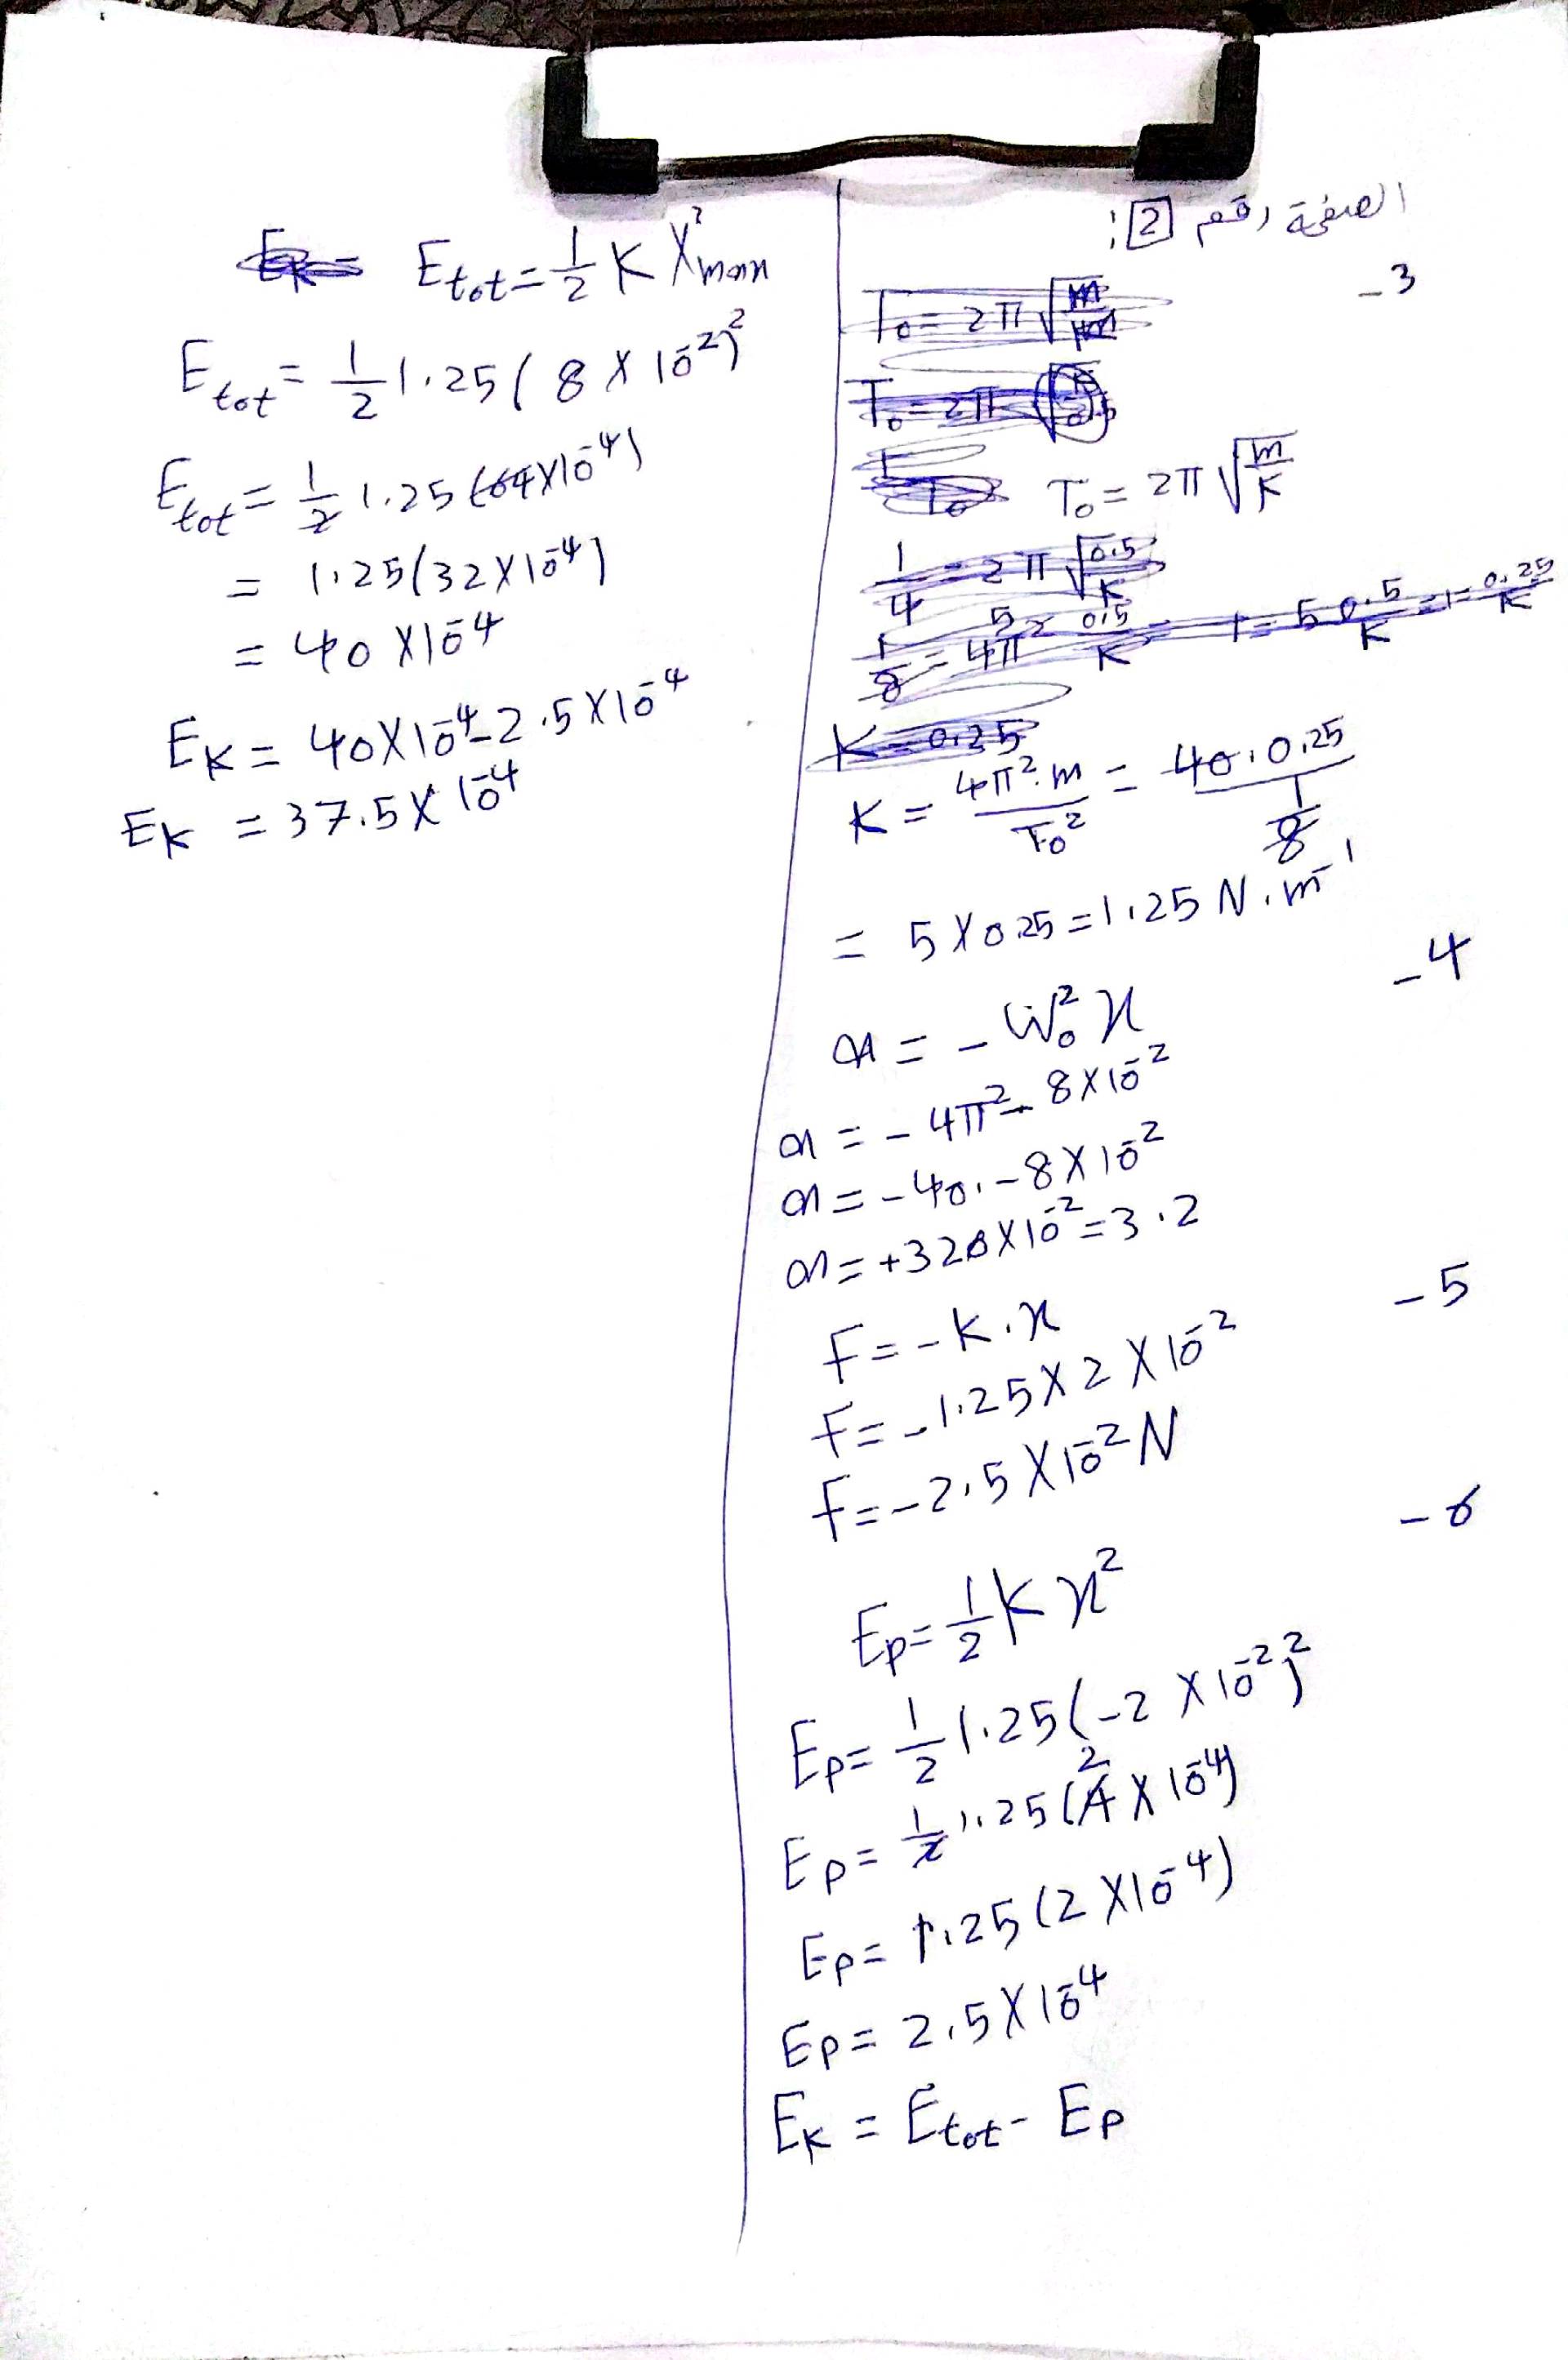 الصفحة رقم 2:
3-
T₀ = 2π √(m/K)
K = 4π².m / T₀² = 40.0.25 / (1/8)
= 5 X 0.25 = 1.25 N.m⁻¹
4-
a = - ω₀² x
a = - 4π² - 8 X 10⁻²
a = - 40. - 8 X 10⁻²
a = + 320 X 10⁻² = 3.2
5-
F = - K.x
F = - 1.25 X 2 X 10⁻²
F = - 2.5 X 10⁻² N
6-
Ep = 1/2 K x²
Ep = 1/2 1.25 (-2 X 10⁻²)²
Ep = 1/2 1.25 (4 X 10⁻⁴) 2
Ep = 1.25 (2 X 10⁻⁴)
Ep = 2.5 X 10⁻⁴
EK = Etot - Ep
Etot = 1/2 K X²max
Etot = 1/2 1.25 (8 X 10⁻²)²
Etot = 1/2 1.25 (64 X 10⁻⁴)
= 1.25 (32 X 10⁻⁴)
= 40 X 10⁻⁴
EK = 40 X 10⁻⁴ - 2.5 X 10⁻⁴
EK = 37.5 X 10⁻⁴